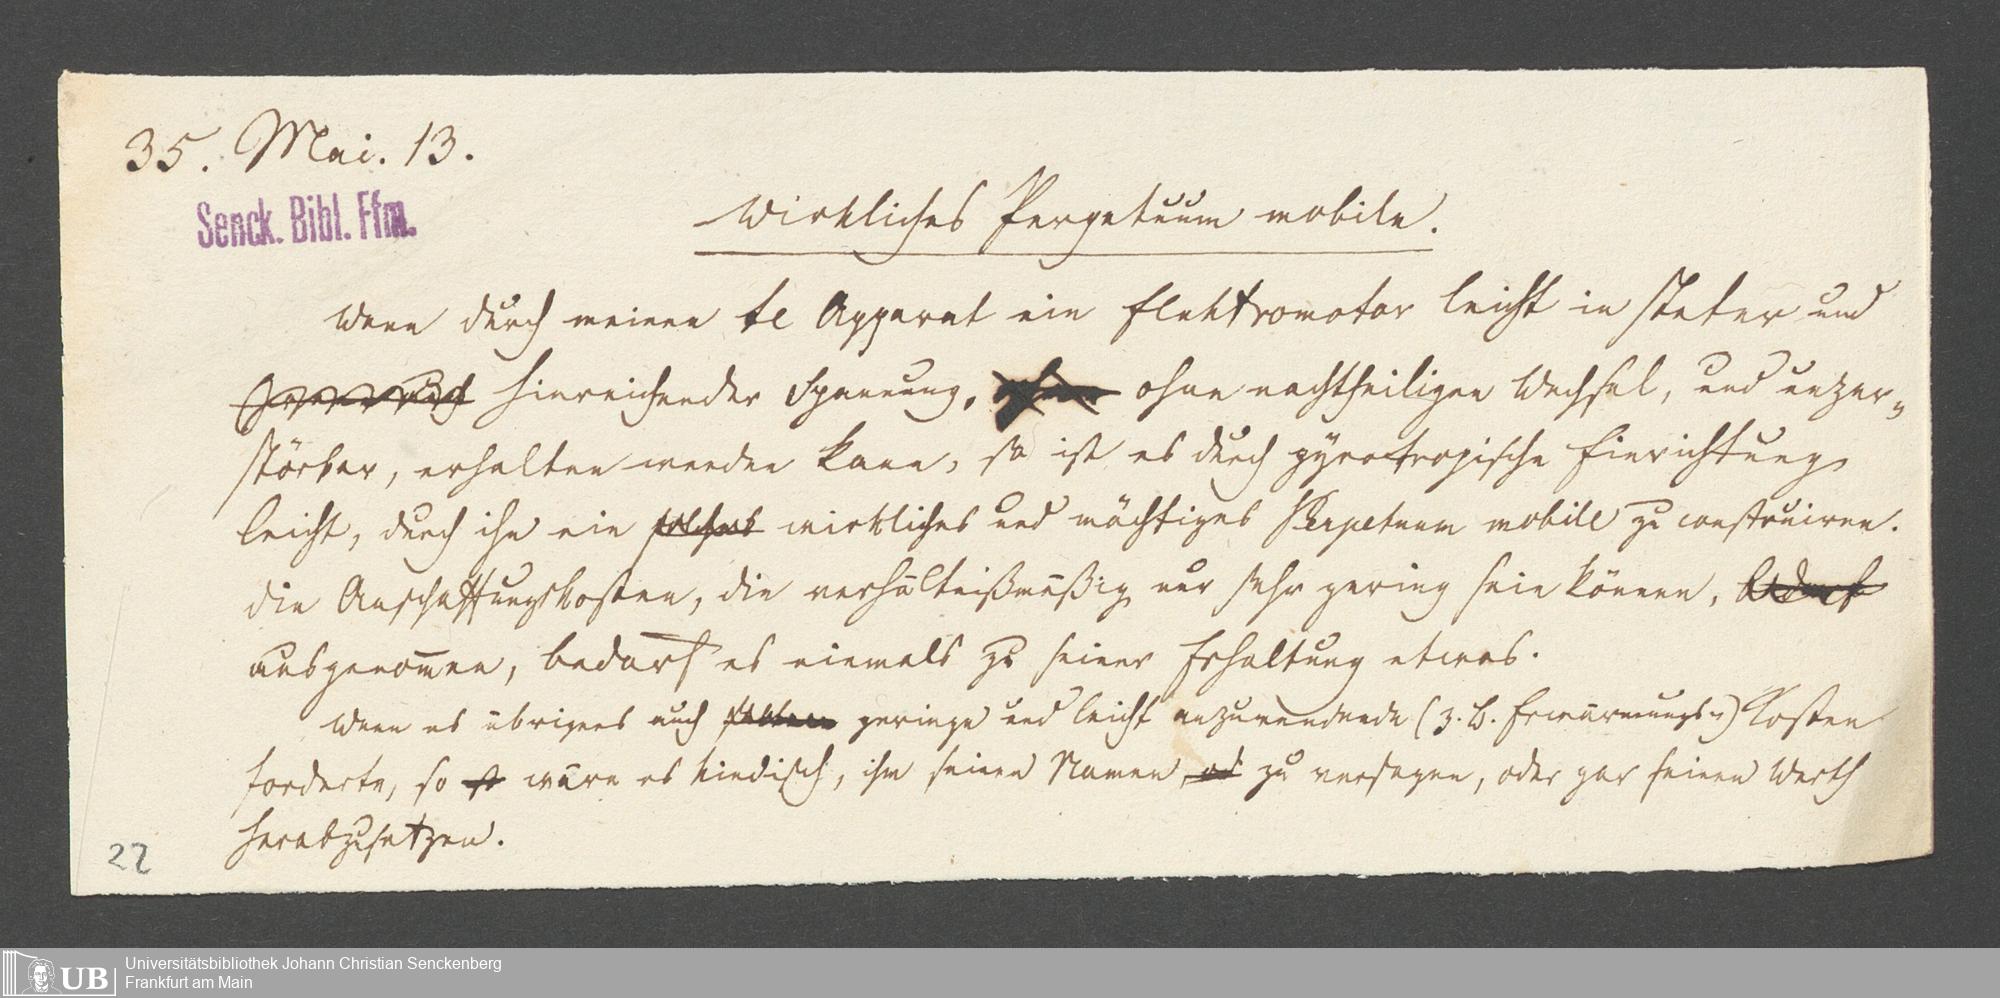 35. Mai. 13.
Senck. Bibl. Ffm.
Wirkliches Perpetuum mobile.
Wenn durch meinen te Apparat ein Elektromotor leicht in steter und
hinreichender Spannung, ohne nachtheiligen Wechsel, und unzer-
störbar, erhalten werden kann, so ist es durch pyrotropische Einrichtung
leicht, durch ihn ein solches wirkliches und mächtiges Perpetuum mobile zu construiren.
die Anschaffungskosten, die verhältnißmäßig nur sehr gering sein können, bedarf
ausgenom̅en, bedarf es niemals zu seiner Erhaltung etwas.
Wenn es übrigens auch geringe und leicht anzuwendende (z. B. Erwärmungs-) Kosten
forderte, so ist wäre es kindisch, ihm seinen Namen od zu versagen, oder gar seinen Werth
herabzusetzen.
22
UB
Universitätsbibliothek Johann Christian Senckenberg
Frankfurt am Main